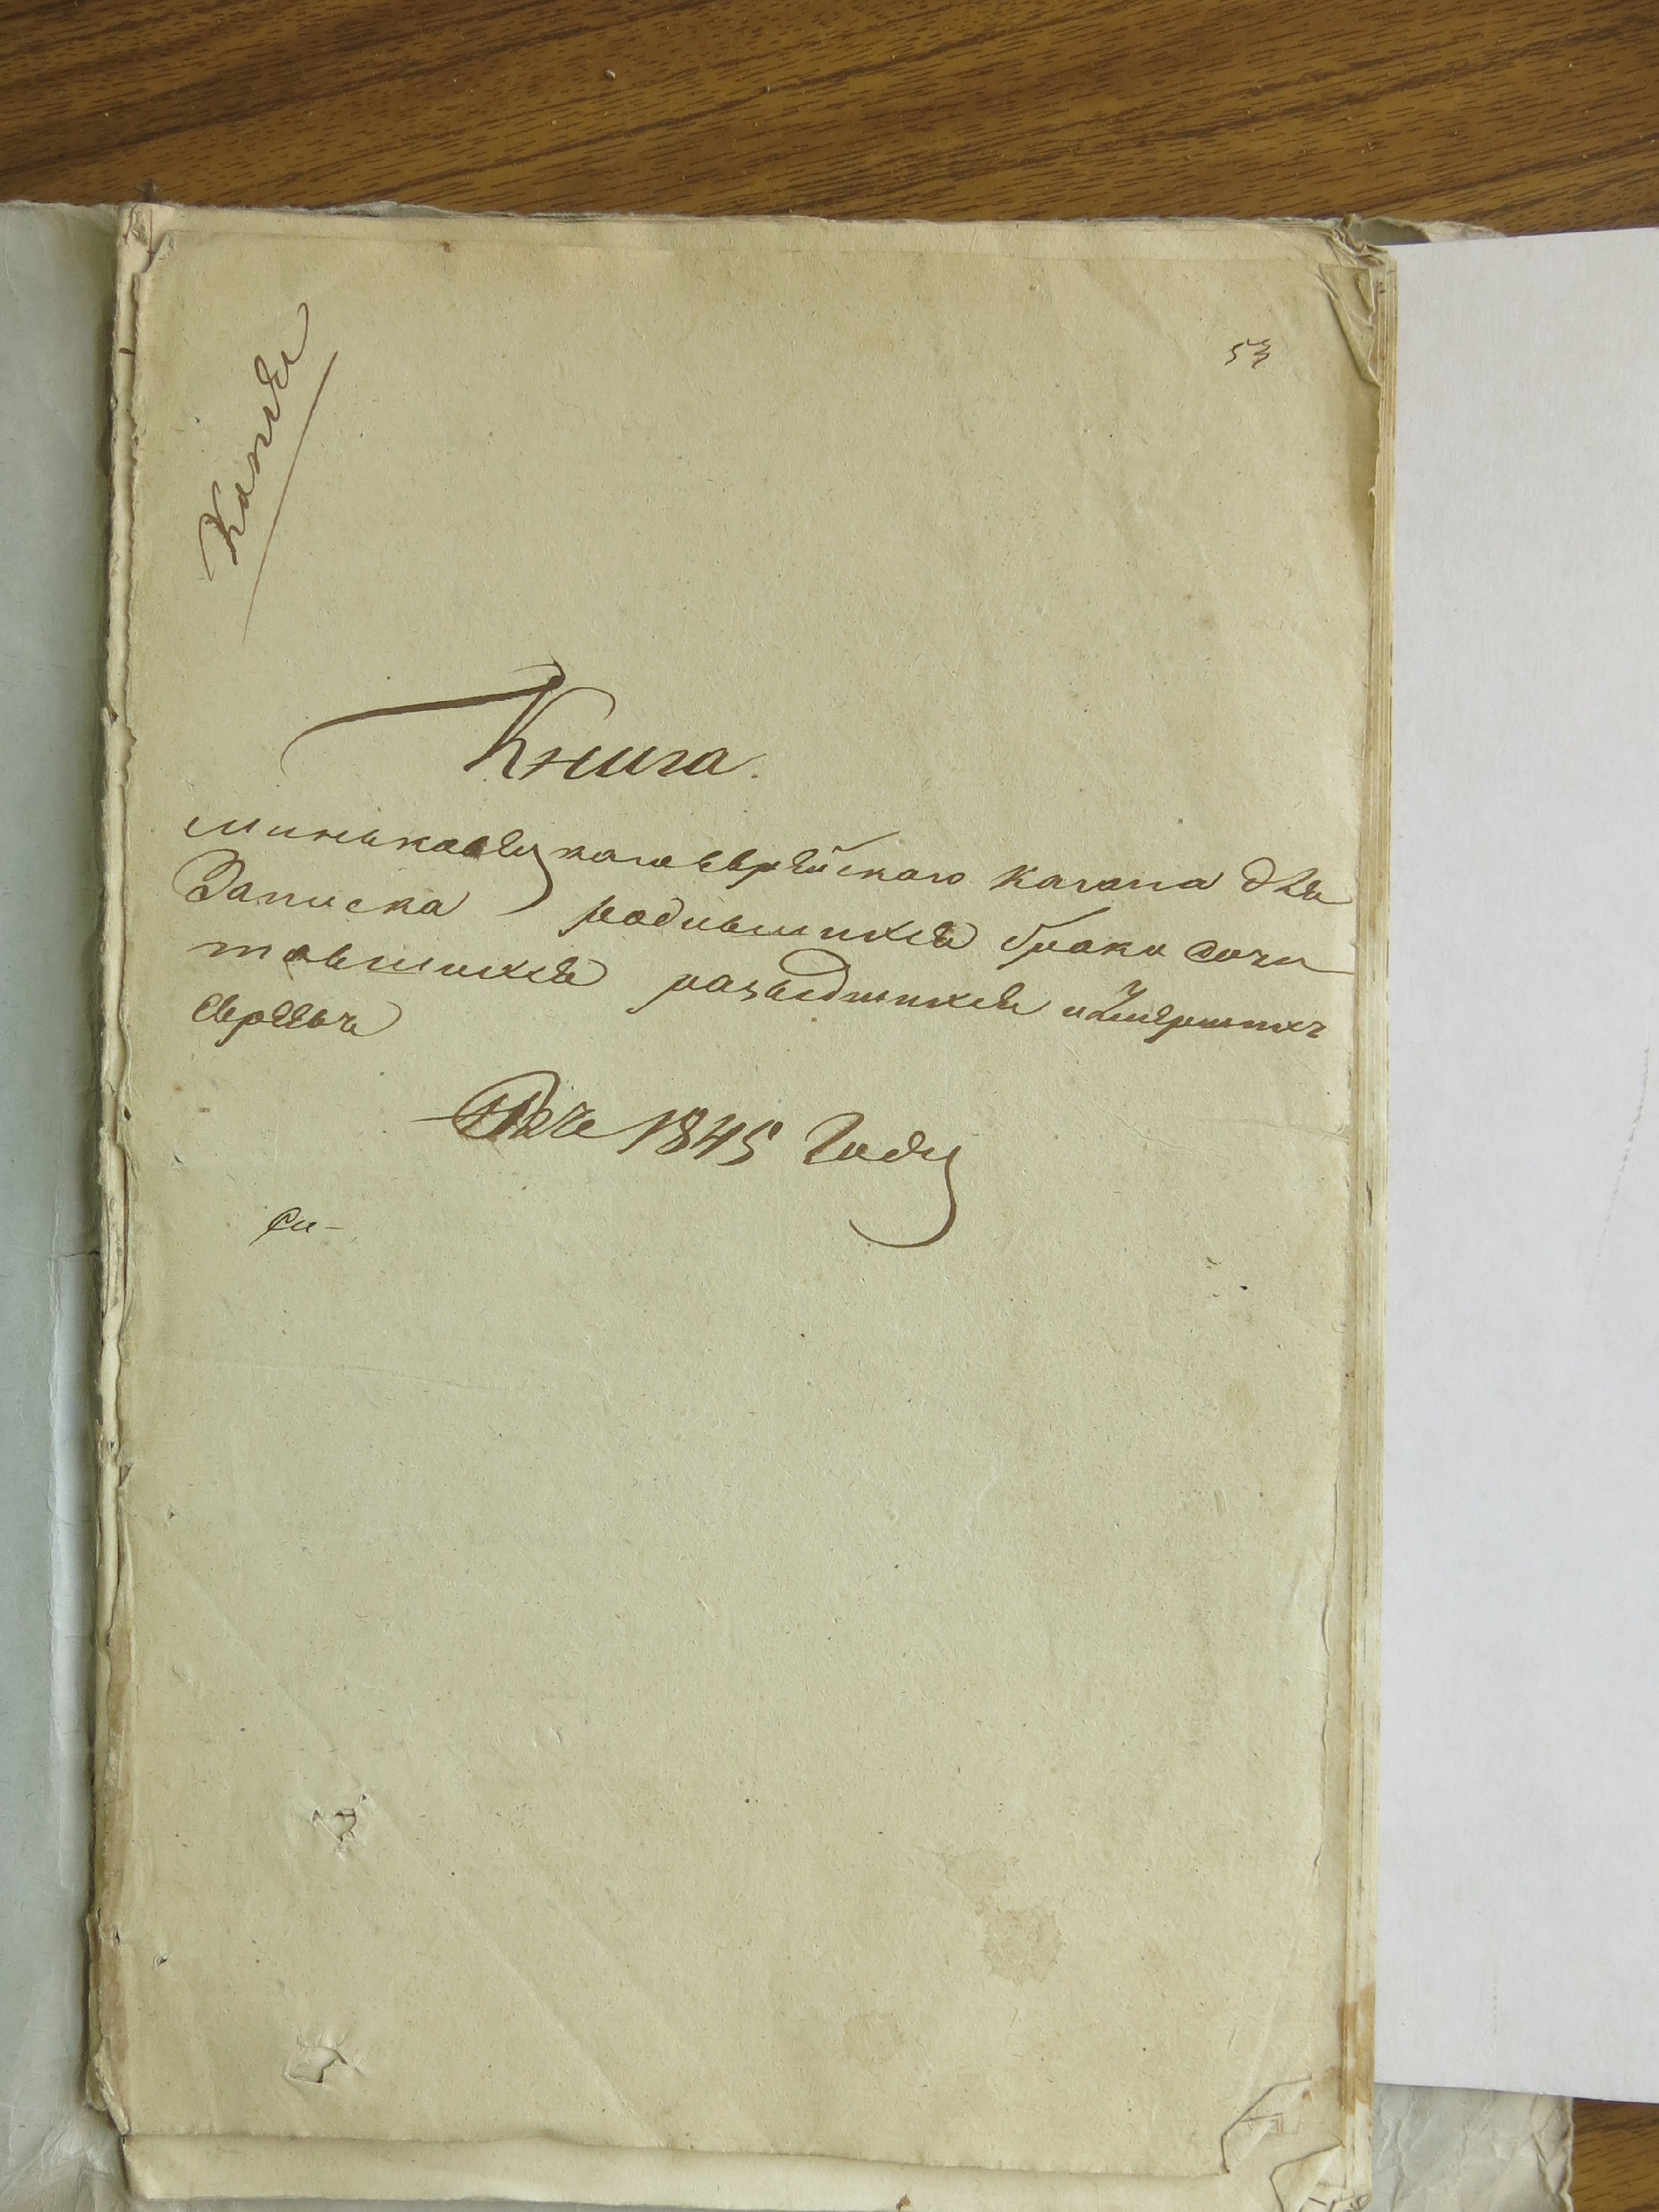 53
Копия
Книга
миньковецкаго еврейскаго кагала для
Записка родившихся браки сочи
тавшихся разведшихся и умерших
евреевъ
1845 Году